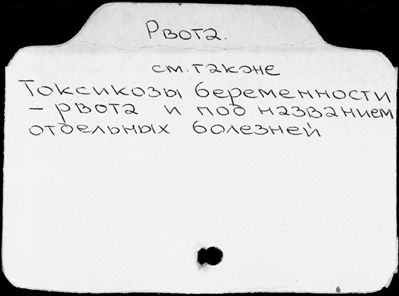 Рвота.
см. также
Токсикозы беременности
– рвота и под названием
отдельных болезней